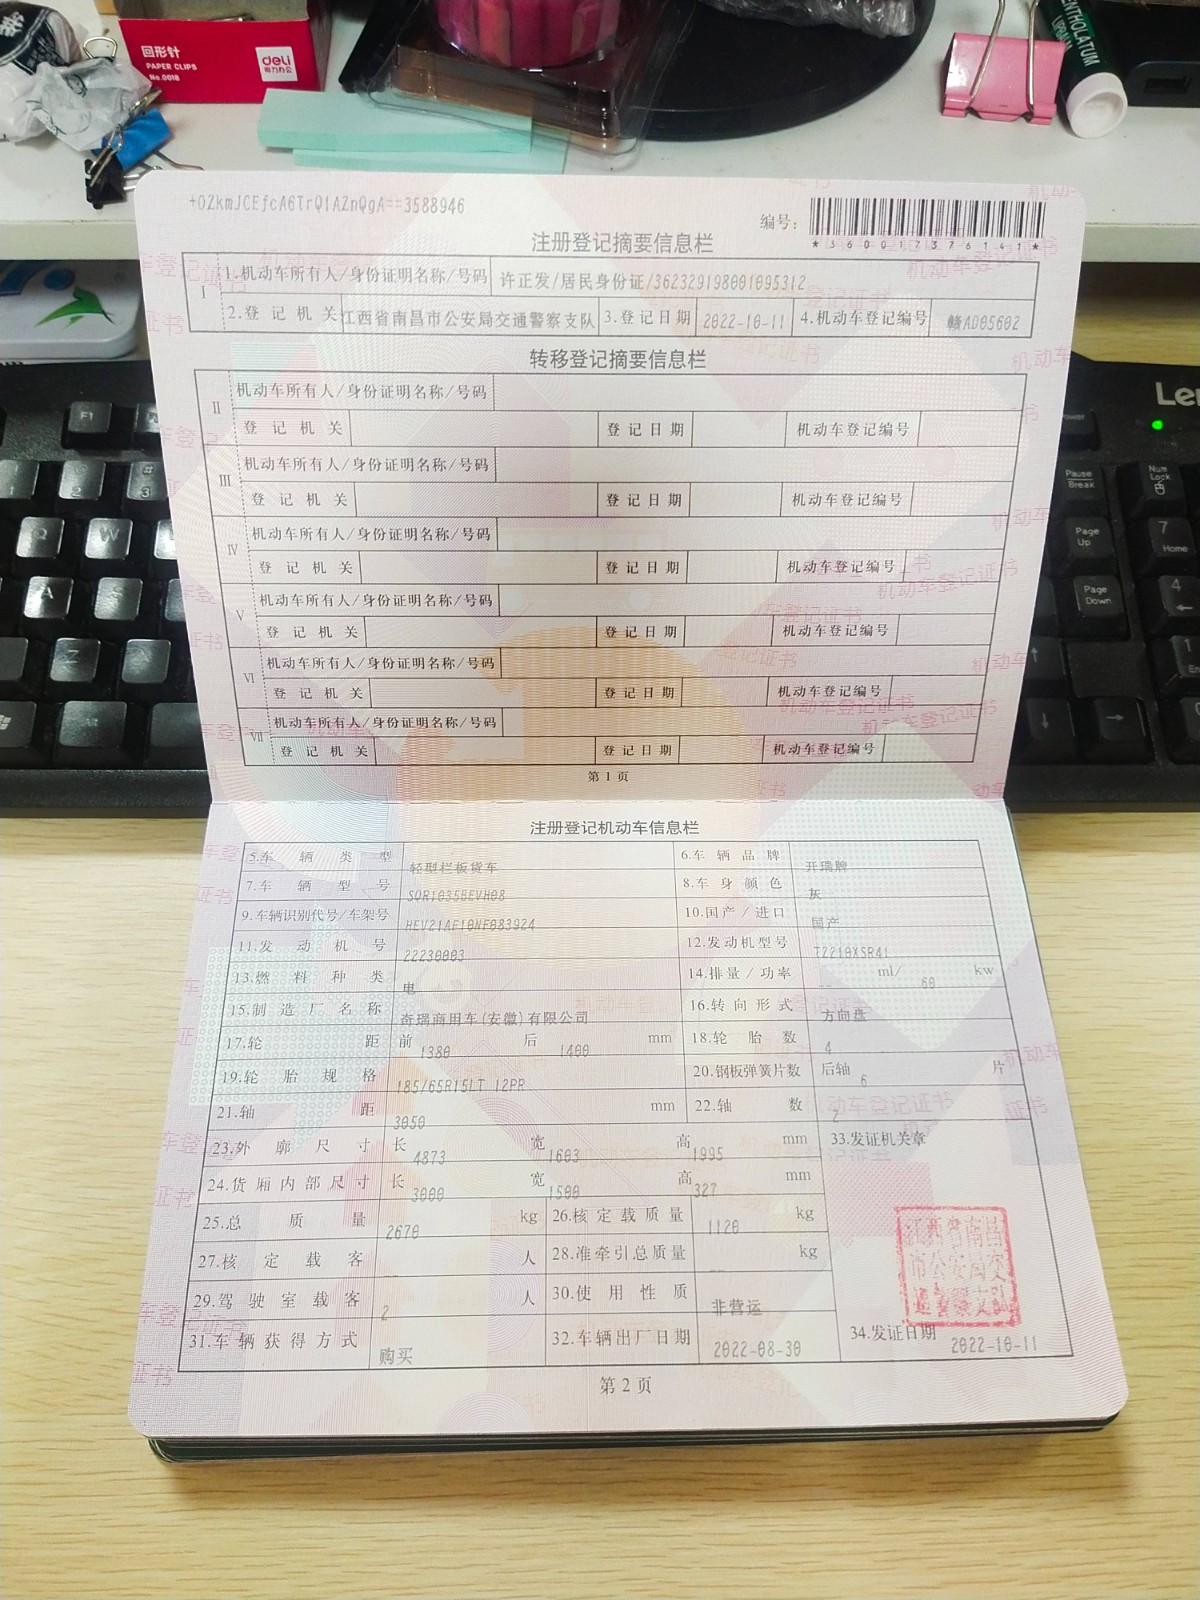 回形针
PAPER CLIPS
No.0018
deli
得力办公
MENTHOLATUM
LIPBALM
+O2kmJCEfcA6TrQ1AZnQgA==3588946
编号:
*360017376141*
注册登记摘要信息栏
I 1.机动车所有人/身份证明名称/号码 许正发/居民身份证/362329198001095312
2.登记机关 江西省南昌市公安局交通警察支队 3.登记日期 2022-10-11 4.机动车登记编号 赣AD05602
转移登记摘要信息栏
II 机动车所有人/身份证明名称/号码
登记机关 登记日期 机动车登记编号
III 机动车所有人/身份证明名称/号码
登记机关 登记日期 机动车登记编号
IV 机动车所有人/身份证明名称/号码
登记机关 登记日期 机动车登记编号
V 机动车所有人/身份证明名称/号码
登记机关 登记日期 机动车登记编号
VI 机动车所有人/身份证明名称/号码
登记机关 登记日期 机动车登记编号
VII 机动车所有人/身份证明名称/号码
登记机关 登记日期 机动车登记编号
第1页
注册登记机动车信息栏
5.车辆类型 轻型栏板货车 6.车辆品牌 开瑞牌
7.车辆型号 SQR1035BEVH08 8.车身颜色 灰
9.车辆识别代号/车架号 HEV21AF10NF083924 10.国产/进口 国产
11.发动机号 22230003 12.发动机型号 TZ210XSR41
13.燃料种类 电 14.排量/功率 -- ml/ 60 kw
15.制造厂名称 奇瑞商用车(安徽)有限公司 16.转向形式 方向盘
17.轮距 前 1380 后 1400 mm 18.轮胎数 4
19.轮胎规格 185/65R15LT 12PR 20.钢板弹簧片数 后轴 6 片
21.轴距 3050 mm 22.轴数 2
23.外廓尺寸 长 4873 宽 1603 高 1995 mm 33.发证机关章
24.货厢内部尺寸 长 3000 宽 1500 高 327 mm
25.总质量 2670 kg 26.核定载质量 1120 kg
27.核定载客 -- 人 28.准牵引总质量 -- kg
29.驾驶室载客 2 人 30.使用性质 非营运
31.车辆获得方式 购买 32.车辆出厂日期 2022-08-30 34.发证日期 2022-10-11
江西省南昌
市公安局交
通警察支队
第2页
Len
F1
Q
W
A
S
Z
X
Alt
Pause
Break
Num
Lock
Page
Up
7
Home
Page
Down
4
1